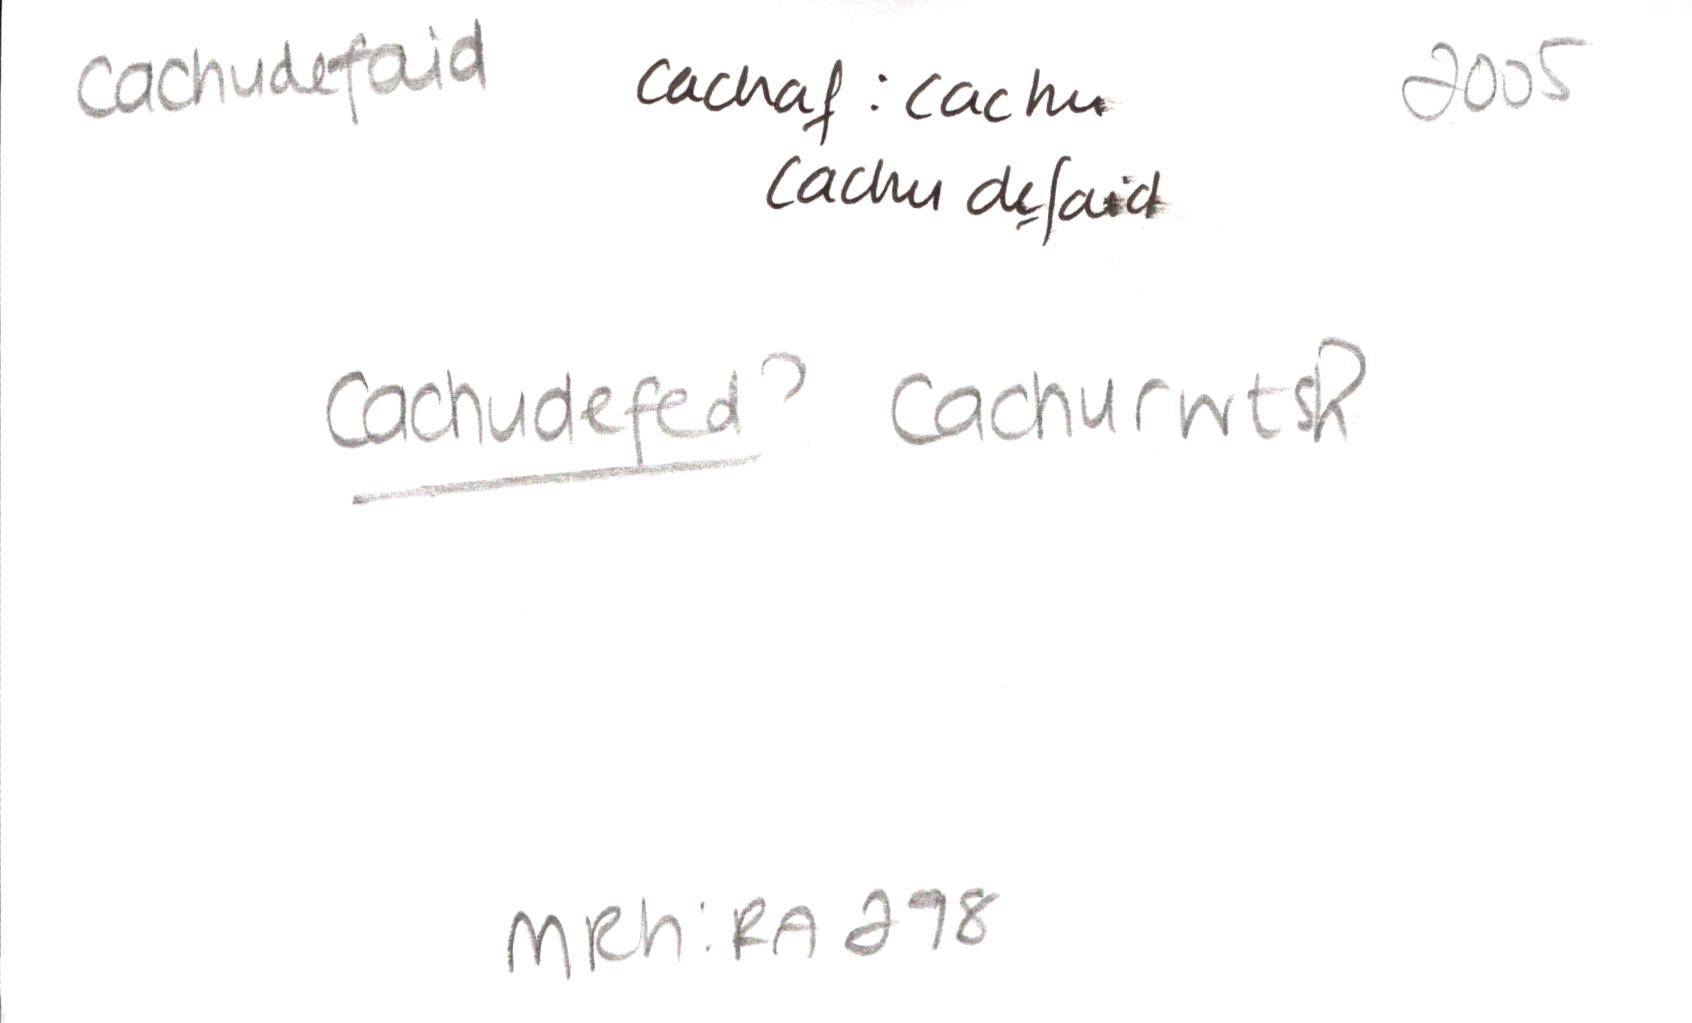 cachudefaid cachaf : cachu 2005
cachu defaid
Cachudefed? Cachurwtsh?
MRh:RA 298